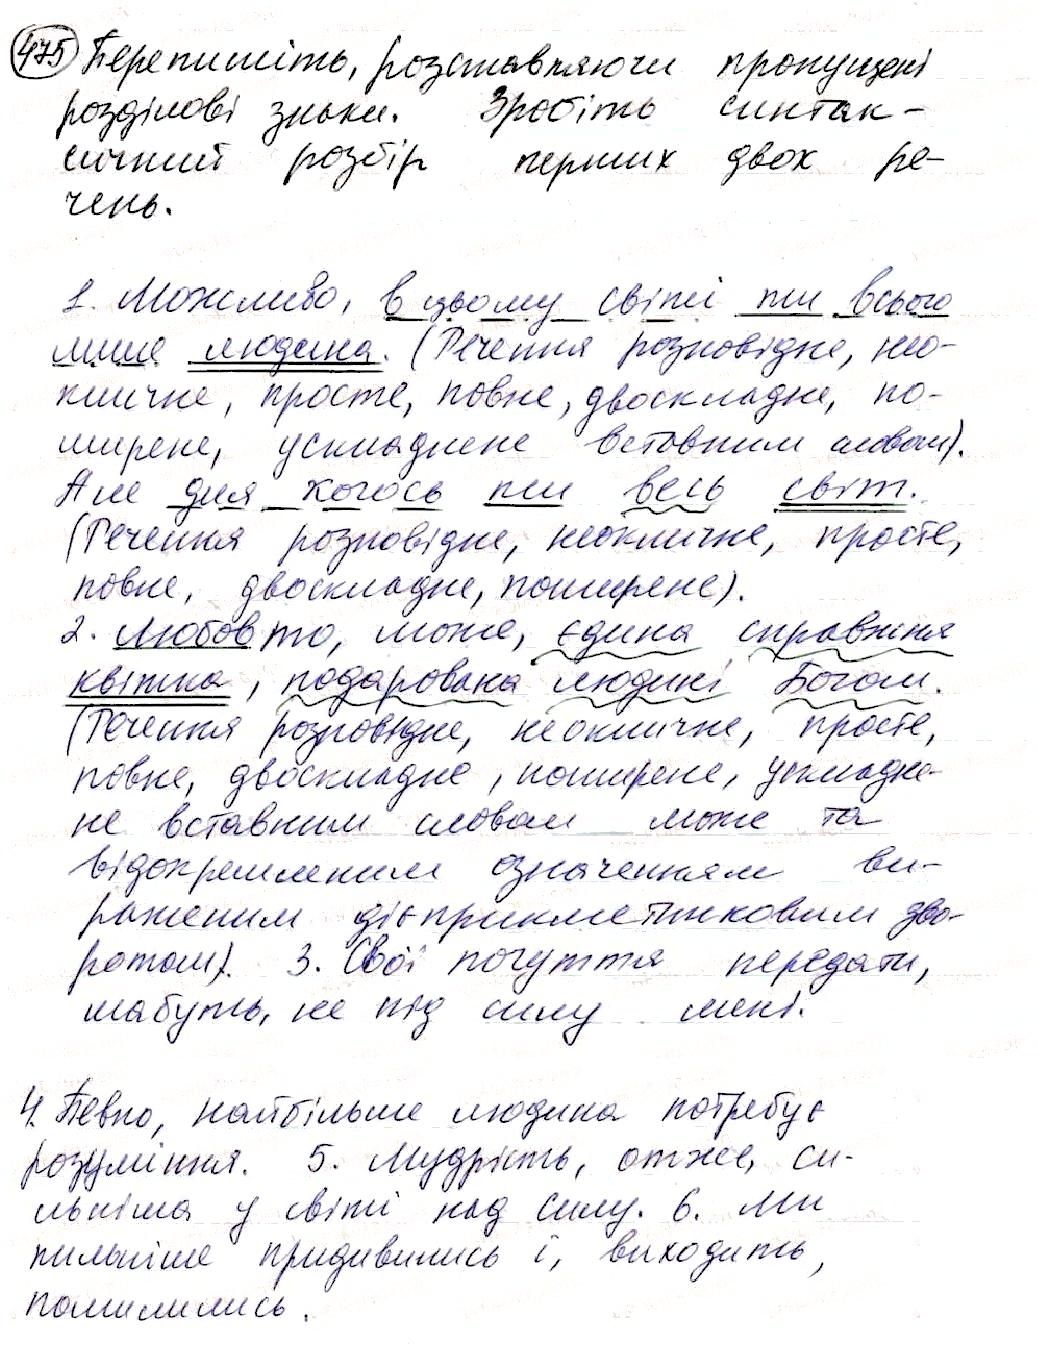 475 Перепишіть, розставляючи пропущені
розділові знаки. Зробіть синтак-
сичний розбір перших двох ре-
чень.
1. Можливо, в цьому світі ти всього
лише людина. (Речення розповідне, нео-
клична, просте, повне, двоскладне, по-
ширене, ускладнене вставним словом).
Але для когось ти весь світ.
(Речення розповідне, неокличне, просте,
повне, двоскладне, поширене).
2. Любов то, може, єдина справжня
квітка, подарована людині Богом.
(Речення розповідне, неокличне, просте,
повне, двоскладне, поширене, ускладне-
не вставним словом може та
відокремленим означенням ви-
раженим дієприкметниковим зво-
ротом). 3. Свої почуття передати,
мабуть, не під силу мені.
4. Певно, найбільше людина потребує
розуміння. 5. Мудрість, отже, си-
льніша у світі над силу. 6. Ми
пильніше придивились і, виходить,
помилились.